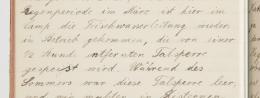 Regenperiode im März ist hier im
Camp die Frischwasserleitung wieder
in Betrieb gekommen, die von einer
½ Stunde entfernten Talsperre
gespeist wird. Während des
Sommers war diese Talsperre leer,
und wir mußten in